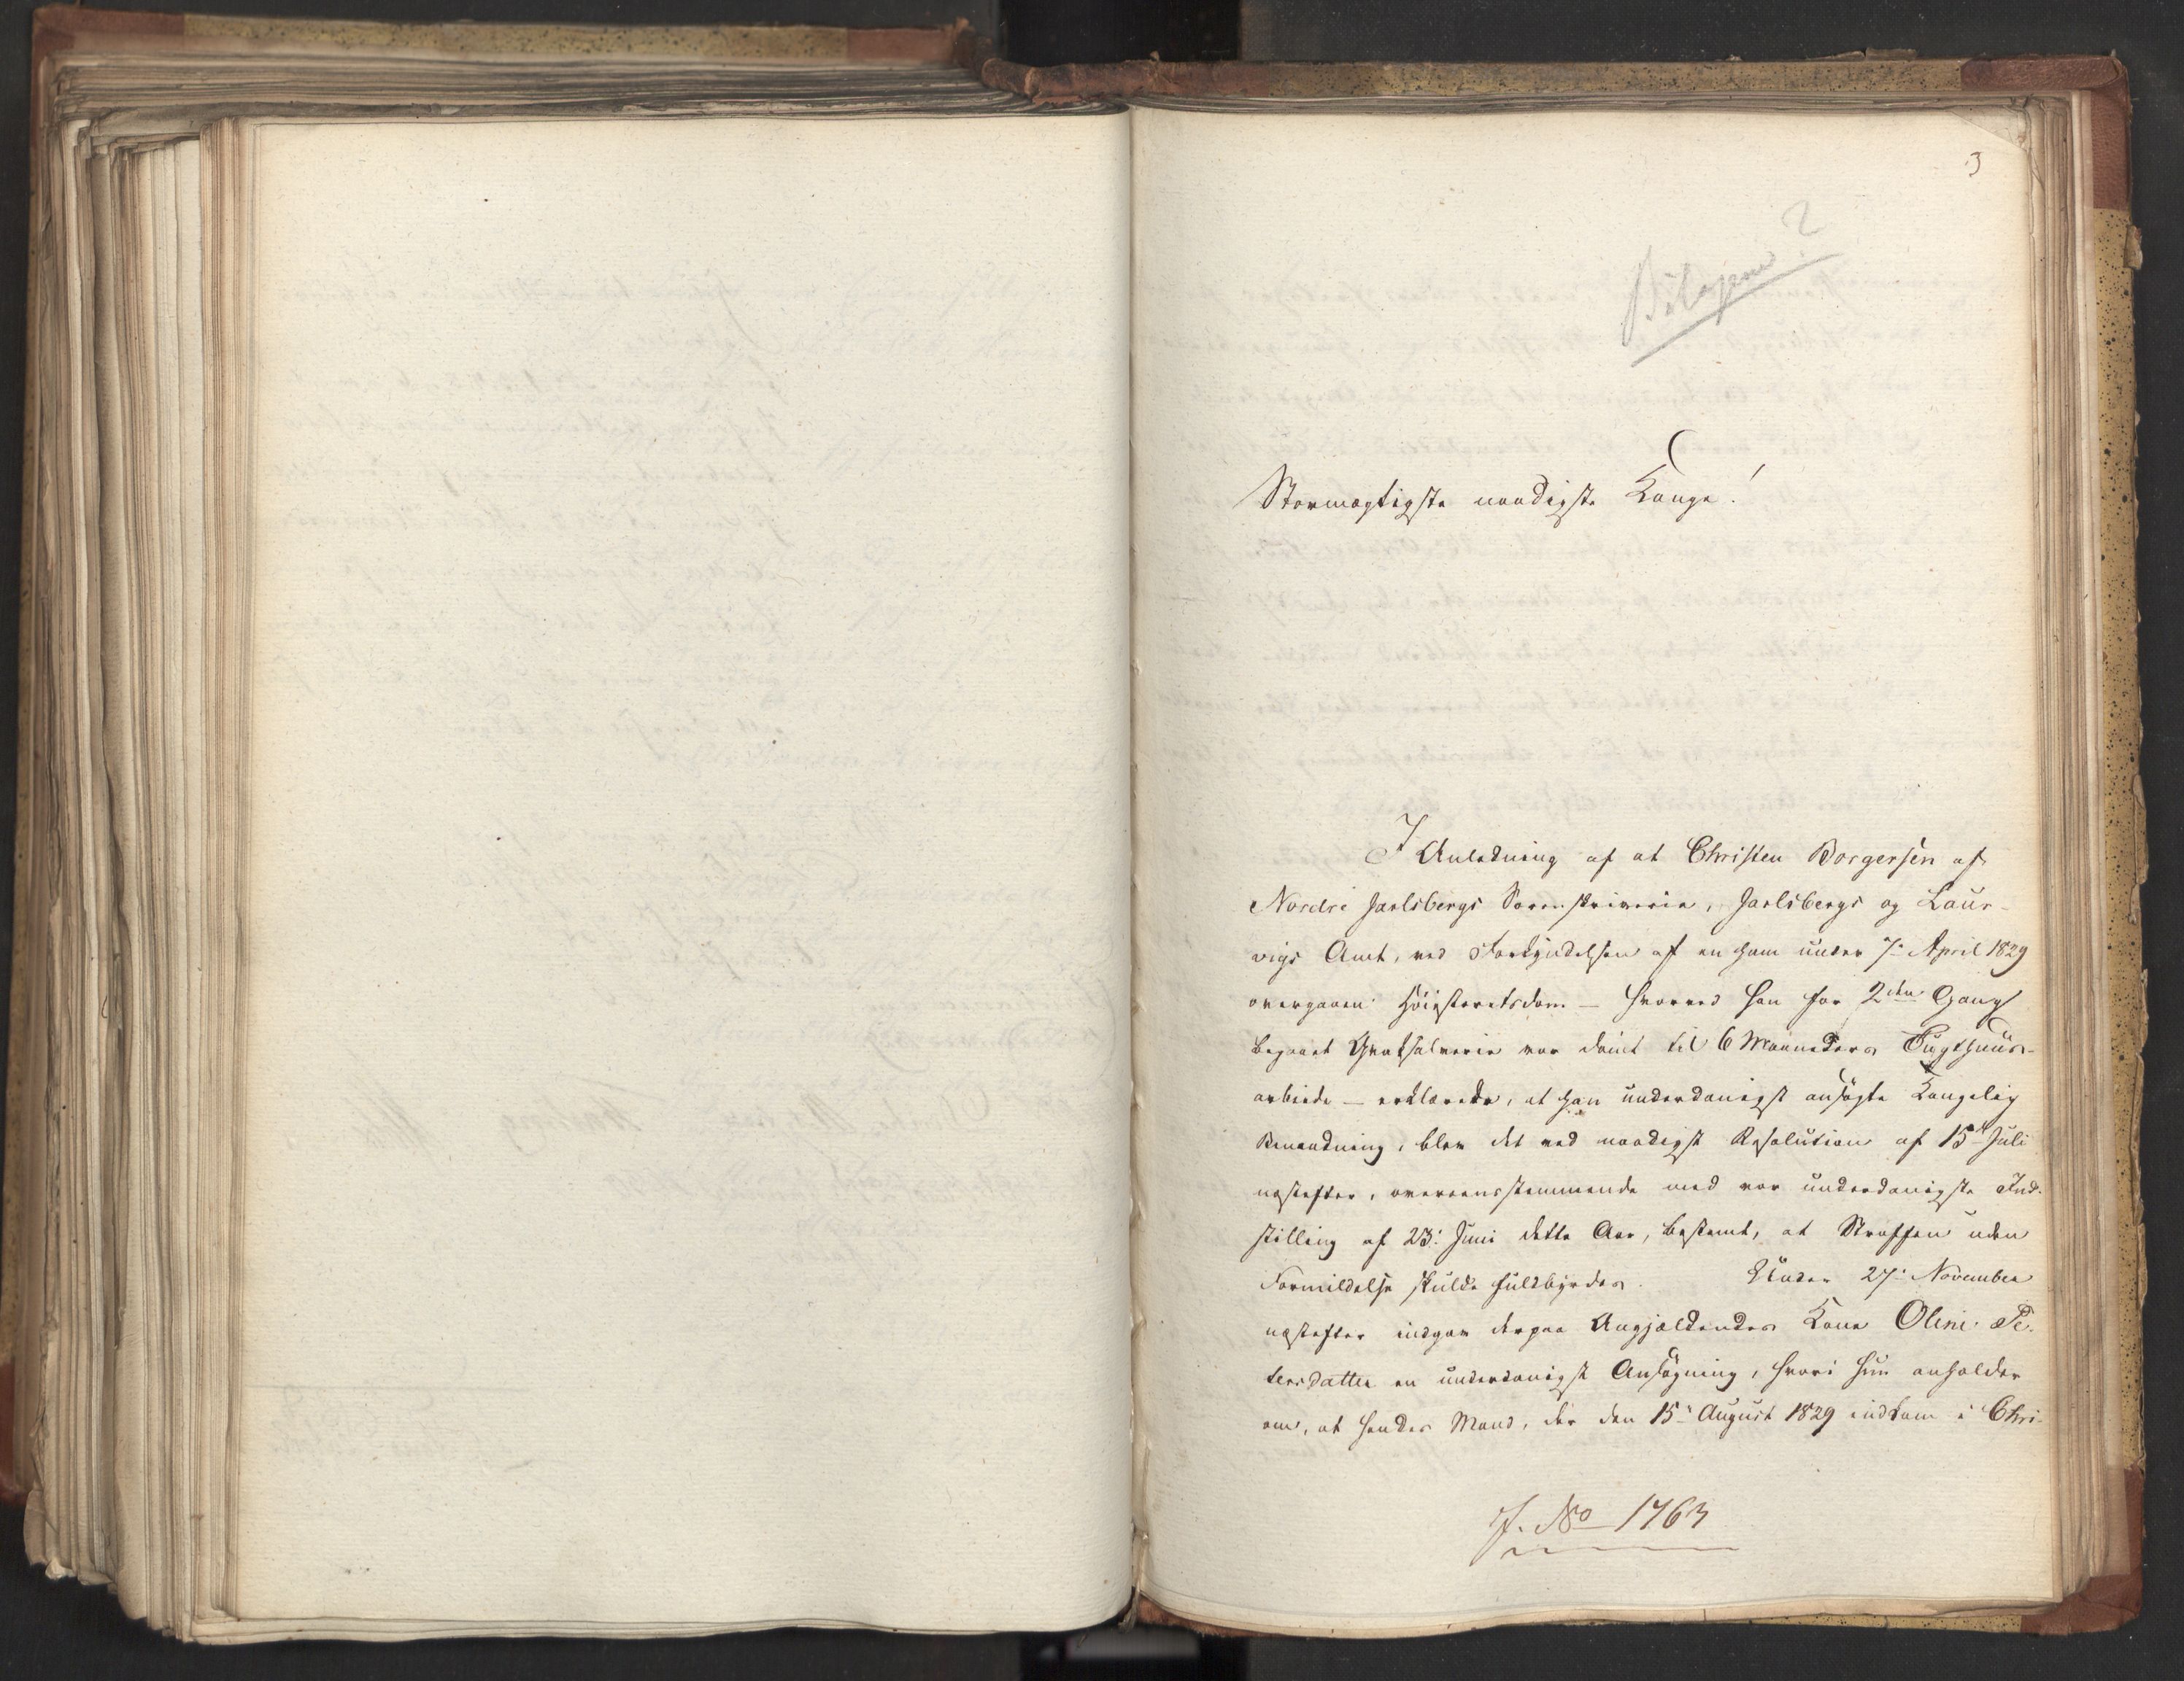 3
Bilagene?
Stormægtigste naadigste Konge!
I Anledning af at Christen Borgersen af
Nordre Jarlsbergs Sorenskriverie, Jarlsbergs og Laur-
vigs Amt, ved Forkyndelsen af en ham under 7. April 1829
overgaaen Höiesteretsdom – hvorved han for 2den Gang
begaaet Qvaksalverie var dömt til 6 Maaneders Tugthuus-
arbeide – erklærede, at han underdanigst ansögte Kongelig
Benaadning, blev det ved naadigst Resolution af 15de Juli
næstefter, overeensstemmende med vor underdanigste Ind-
stilling af 23. Juni dette Aar, bestemt, at Straffen uden
Formildelse skulde fuldbyrdes. Under 27. November
næstefter indgav derpaa Angjældendes Kone Oline Pe-
tersdatter en underdanigst Ansögning, hvori hun anholder
om, at hendes Mand, der den 15. August 1829 indkom i Chri-
J. No 1763